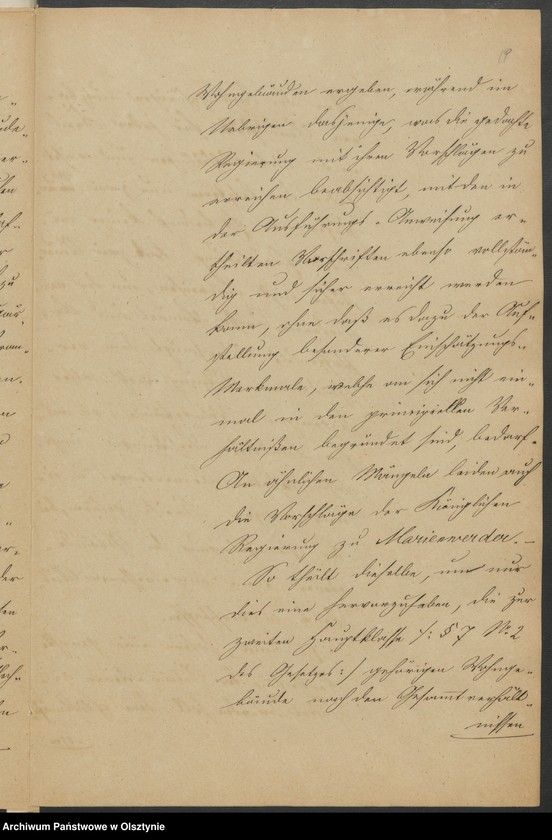 Wohngebäuden ergeben, während im
Uebrigen dasjenige, was die gedachte
Regierung mit ihren Vorschlägen zu
erreichen beabsichtigt, mit den in
der Ausführungs-Anweisung er-
theilten Vorschriften ebenso vollstän-
dig und sicher erreicht werden
kann, ohne daß es dazu der Auf-
stellung besonderer Einschätzungs-
Merkmale, welche an sich nicht ein-
mal in den prinzipiellen Ver-
hältnißen begründet sind, bedarf.
An ähnlichen Mängeln leiden auch
die Vorschläge der Königlichen
Regierung zu Marienwerder. –
So theilt dieselbe, um nur
dies eine hervorzuheben, die zur
zweiten Hauptklasse /: § 7 No. 2
des Gesetzes :/ gehörigen Wohnge-
bäude nach den Gesammtverhält-
nissen
Archiwum Państwowe w Olsztynie